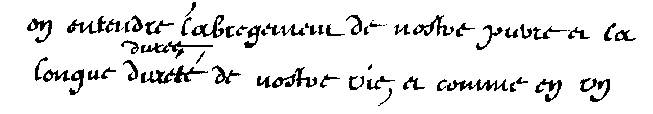 on entendre l'abregement de nostre et la
duree
longue dureté de nostre vie, et comme en vn